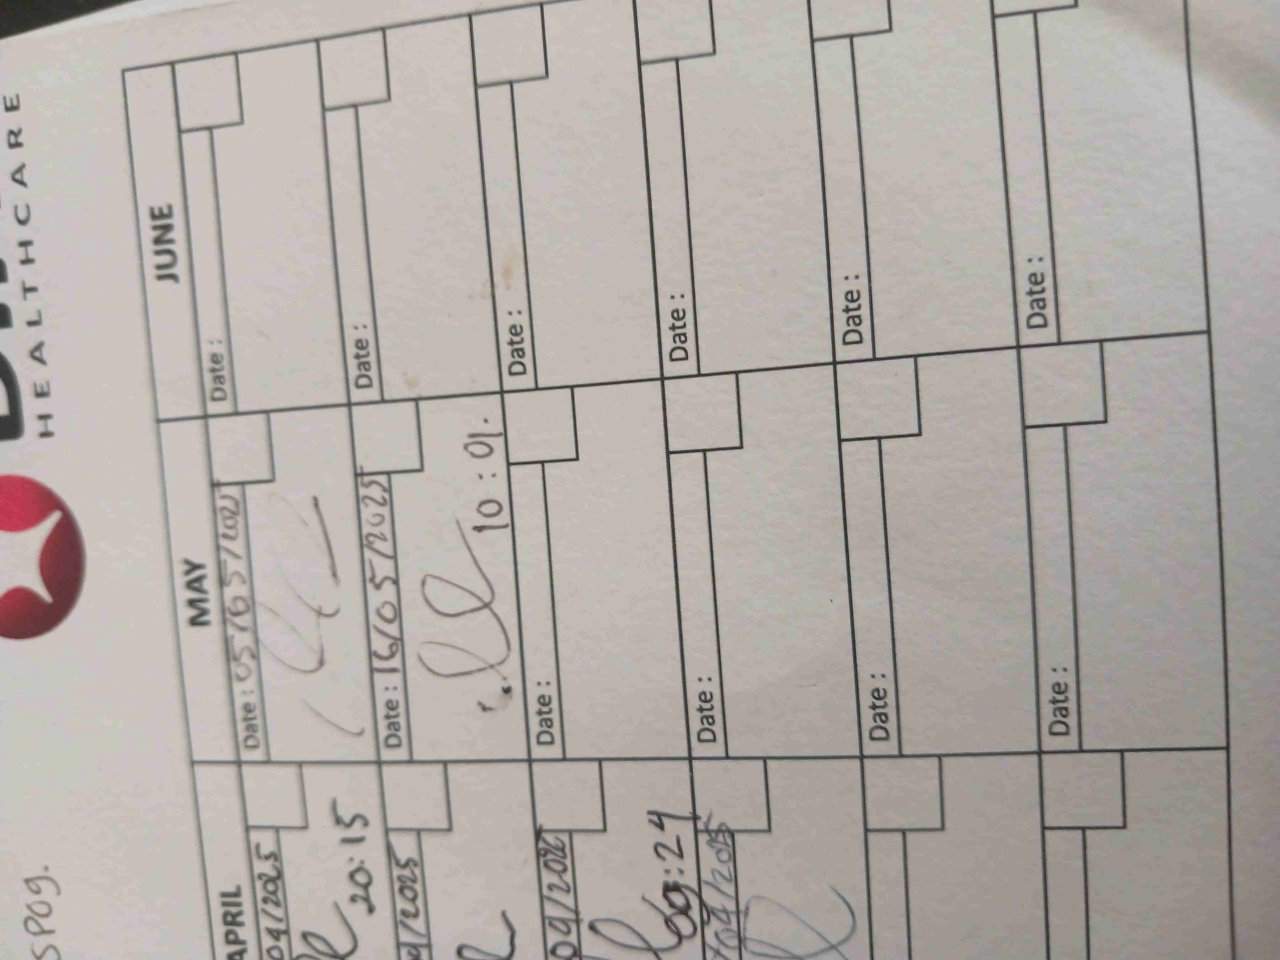 HEALTHCARE
SPOG.
APRIL MAY JUNE
04/2025 Date: 05/05/2025 Date:
20:15
/2025 Date: 16/05/2025 Date:
10:01.
Date: Date:
09:24
/04/2025 Date: Date:
Date: Date:
Date: Date: